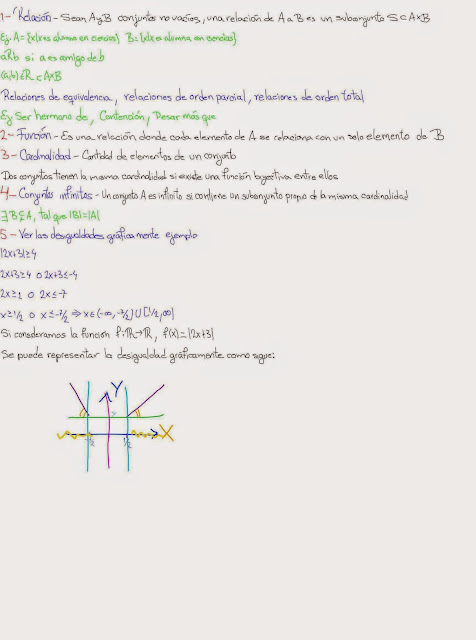 1- Relación - Sean A y B conjuntos no vacíos, una relación de A a B es un subconjunto S⊂A×B
Ej. A={x|x es alumno en ciencias} B={x|x es alumna en ciencias}
aRb si a es amigo de b
(a,b)∈R⊂A×B
Relaciones de equivalencia, relaciones de orden parcial, relaciones de orden total
Ej Ser hermano de, Contención, Pesar más que
2- Función - Es una relación donde cada elemento de A se relaciona con un solo elemento de B
3- Cardinalidad - Cantidad de elementos de un conjunto
Dos conjuntos tienen la misma cardinalidad si existe una función biyectiva entre ellos
4- Conjuntos infinitos - Un conjunto A es infinito si contiene un subconjunto propio de la misma cardinalidad
∃B⊊A, tal que |B|=|A|
5- Ver las desigualdades gráficamente ejemplo
|2x+3|≥4
2x+3≥4 o 2x+3≤-4
2x≥1 o 2x≤-7
x≥1/2 o x≤-7/2 ⇒ x∈(-∞,-7/2)∪[1/2,∞)
Si consideramos la función f:ℝ→ℝ, f(x)=|2x+3|
Se puede representar la desigualdad gráficamente como sigue:
Y
X
-7/2
1/2